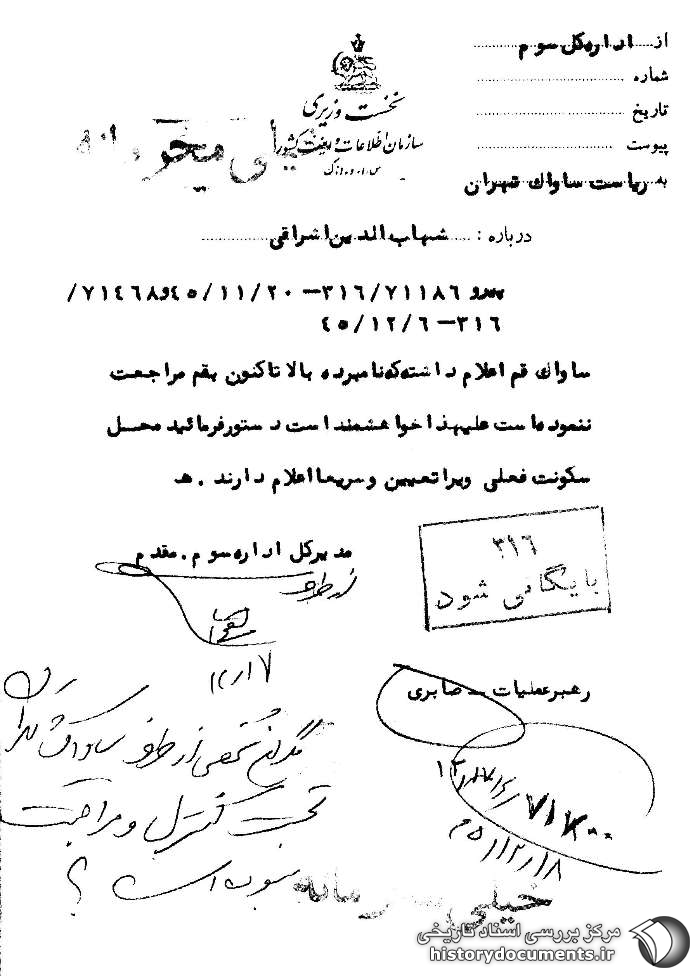 از اداره کل سوم
شماره
تاریخ
پیوست
به ریاست ساواک تهران
نخست وزیری
سازمان اطلاعات و امنیت کشور
س.ا.و.ا.ک
خیلی محرمانه
درباره : شهاب الدین اشراقی
پیرو ۳۱۶/۷۱۱۸۶ – ۴۵/۱۱/۲۰ و ۷۱۴۶۸/
۳۱۶ – ۴۵/۱۲/۶
ساواک قم اعلام داشته که نامبرده بالا تاکنون بقم مراجعت
ننموده است علیهذا خواهشمند است دستور فرمائید محل
سکونت فعلی ویرا تعیین و سریعا اعلام دارند . ه
مدیرکل اداره سوم . مقدم
از طرف
۱۲/۱۷
۳۱۶
بایگانی شود
رهبر عملیات – صابری
۷۱۷۰۰
۴۵/۱۲/۱۸
از طرف ساواک تهران
تحت کنترل و مراقبت
نبوده است ؟
خیلی محرمانه
مرکز بررسی اسناد تاریخی
historydocuments.ir